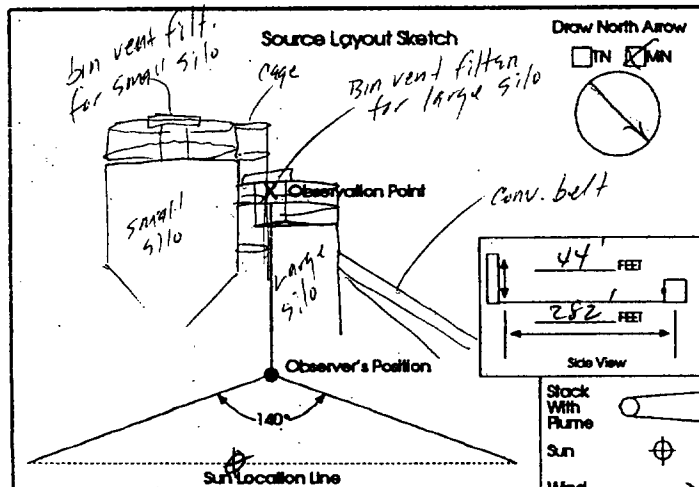 Source Layout Sketch
Draw North Arrow
TN MN
bin vent filt.
for small silo
cage
Bin vent filter
for large silo
Observation Point
conv. belt
small
silo
Large
silo
44' FEET
282' FEET
Side View
Observer's Position
140°
Sun Location Line
Stack
With
Plume
Sun
Wind